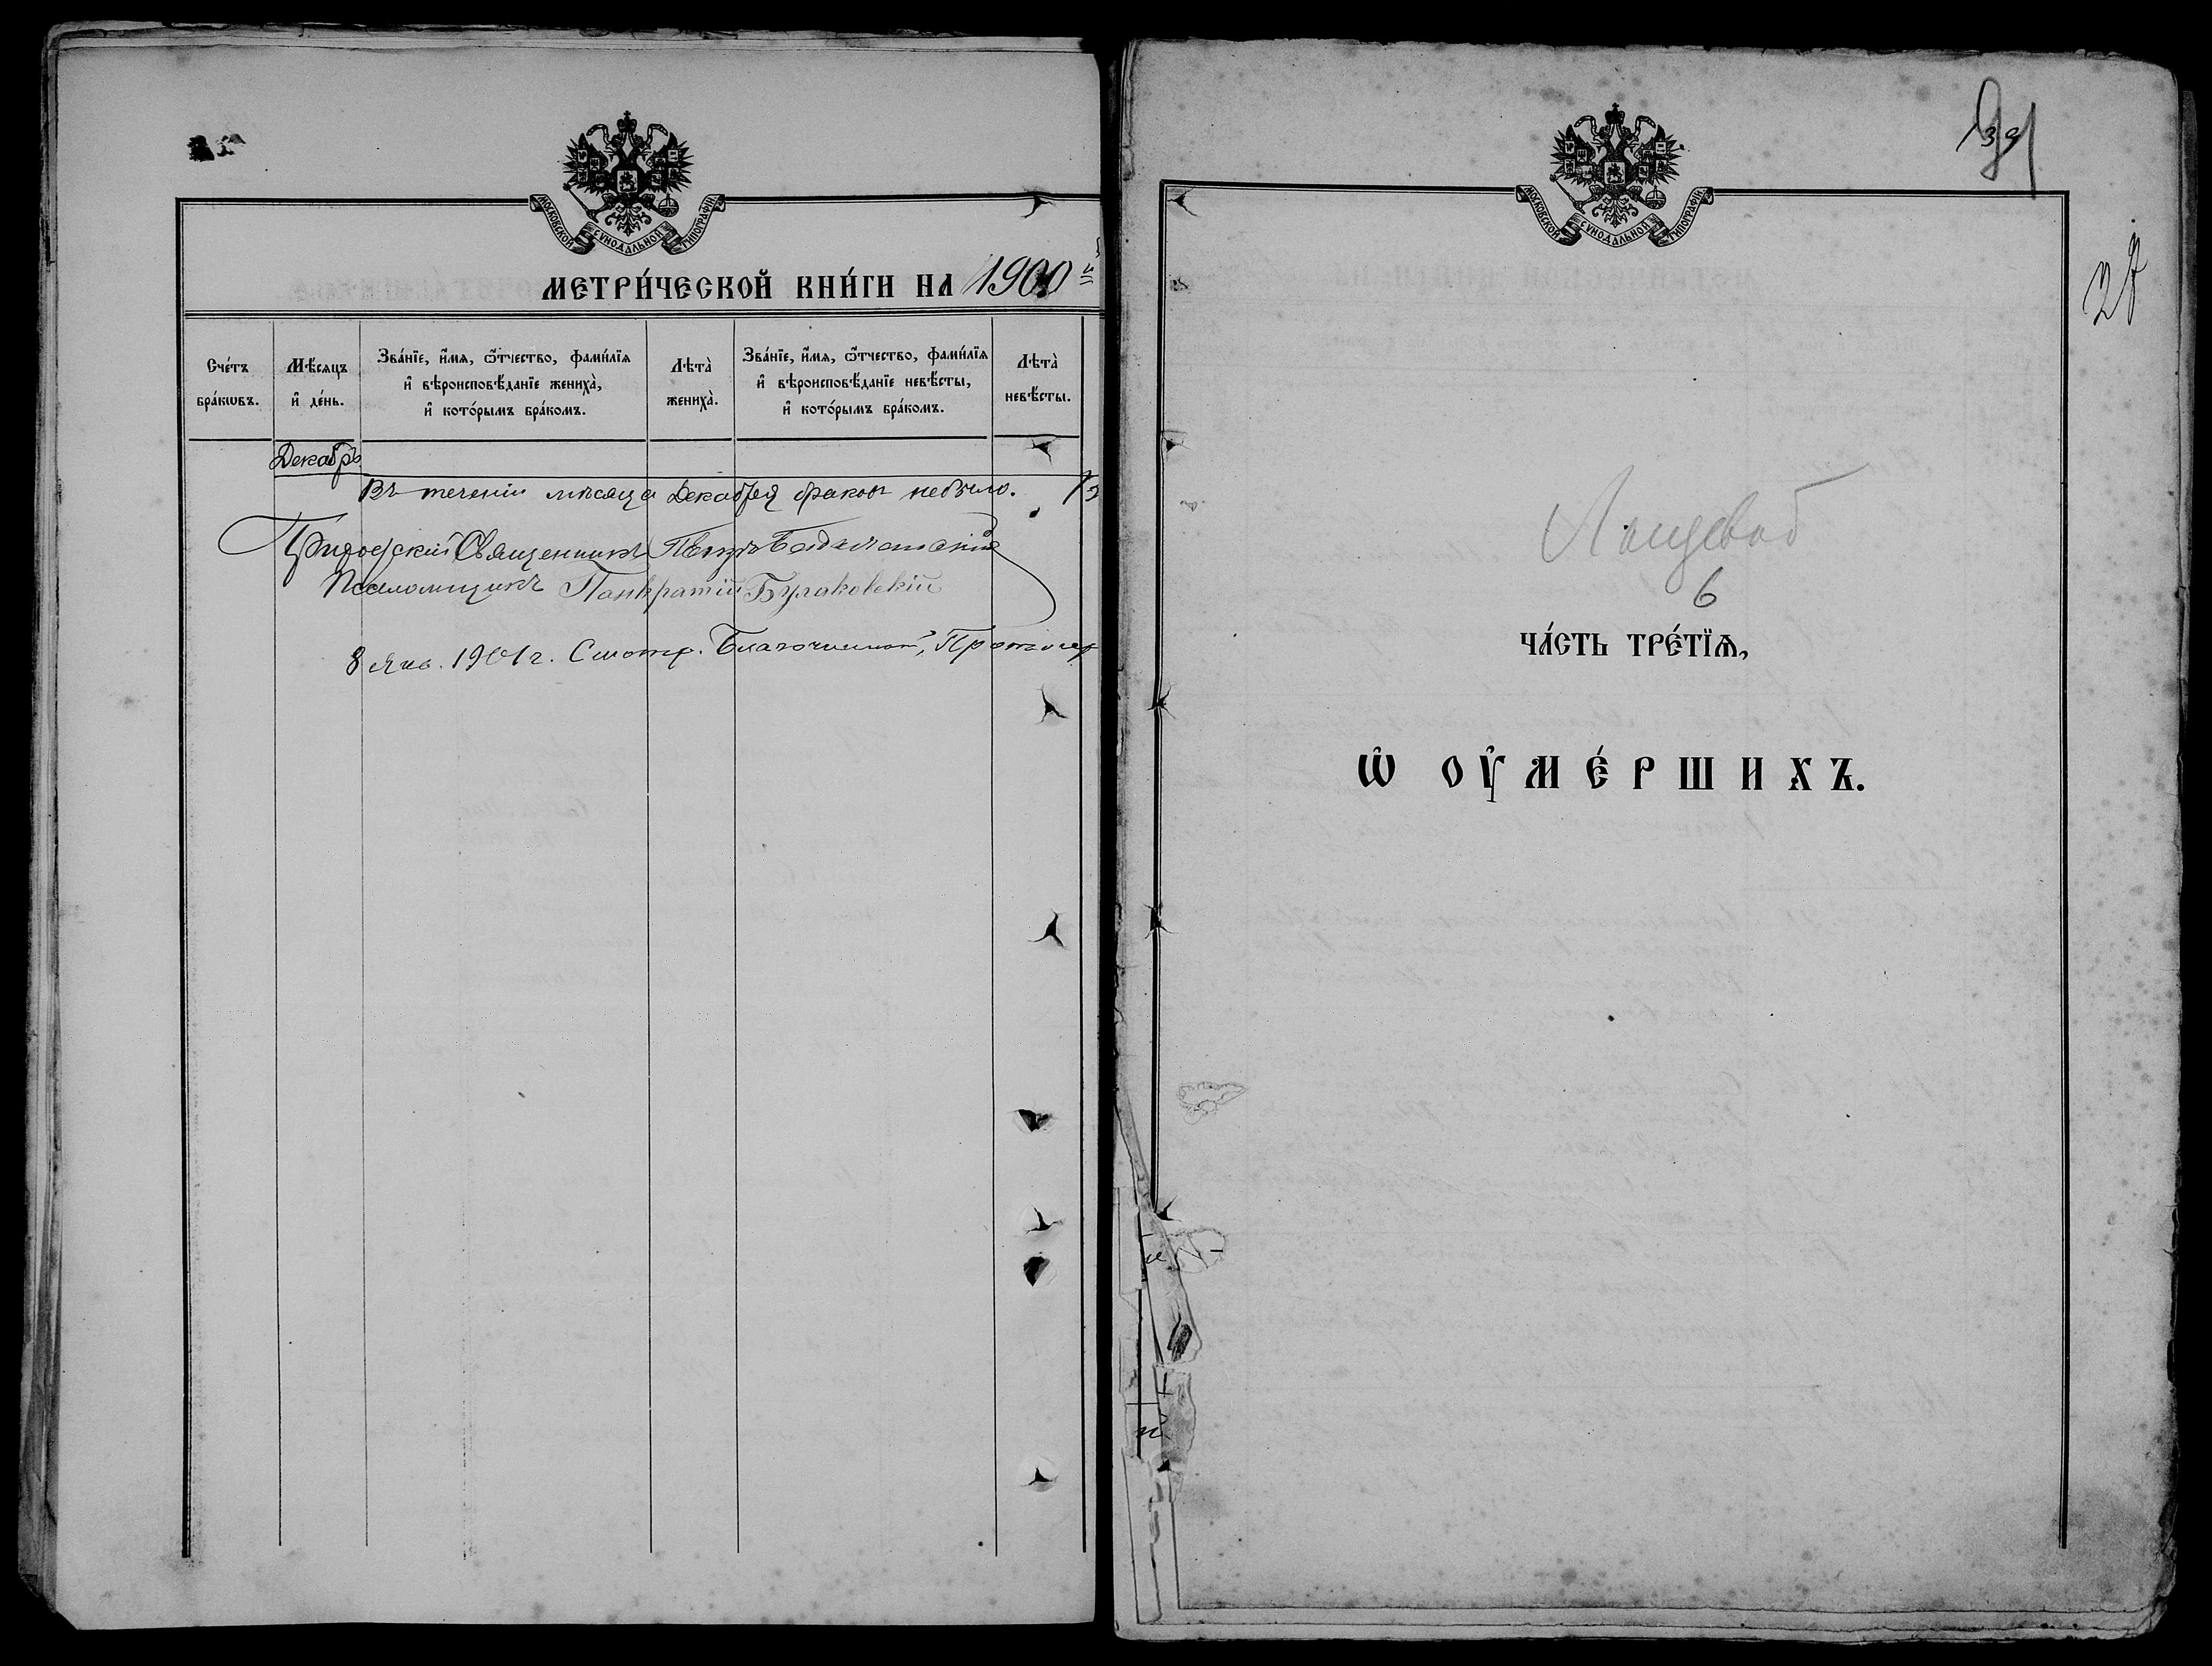 МОСКОВСКОЙ СѴНОДАЛЬНОЙ ТИПОГРАФІИ
МЕТРИ́ЧЕСКОЙ КНИ́ГИ НА 1900 й
Сче́тъ бра́кѡвъ.
Мѣ́сяцъ и҆ де́нь.
Зва́нїе, и҆́мѧ, ѻ҆́тчество, фами́лїѧ
и҆ вѣроисповѣ́данїе жениха̀,
и҆ кото́рымъ бра́комъ.
Лѣта̀ жениха̀.
Зва́нїе, и҆́мѧ, ѻ҆́тчество, фами́лїѧ
и҆ вѣроисповѣ́данїе невѣ́сты,
и҆ кото́рымъ бра́комъ.
Лѣта̀ невѣ́сты.
Декабрь
Въ теченіи мѣсяца Декабря браков небыло.
Священникъ Петръ
Псаломщикъ Панкратій Булаковскій
8 Янв. 1901 г. Смотр. Благочинный, Протоіер
МОСКОВСКОЙ СѴНОДАЛЬНОЙ ТИПОГРАФІИ
139
27
6
ЧА́СТЬ ТРЕ́ТЇѦ,
Ѡ҆ ОУ҆МЕ́РШИХЪ.